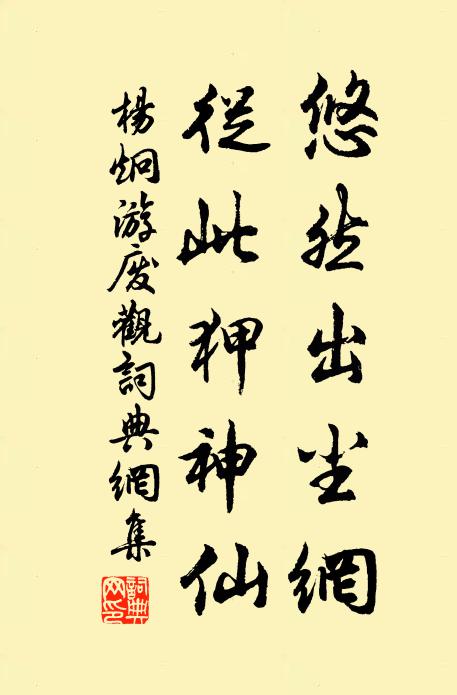 悠然出尘網
從此狎神仙
楊炯游废觀詞典網集
詞典
网印